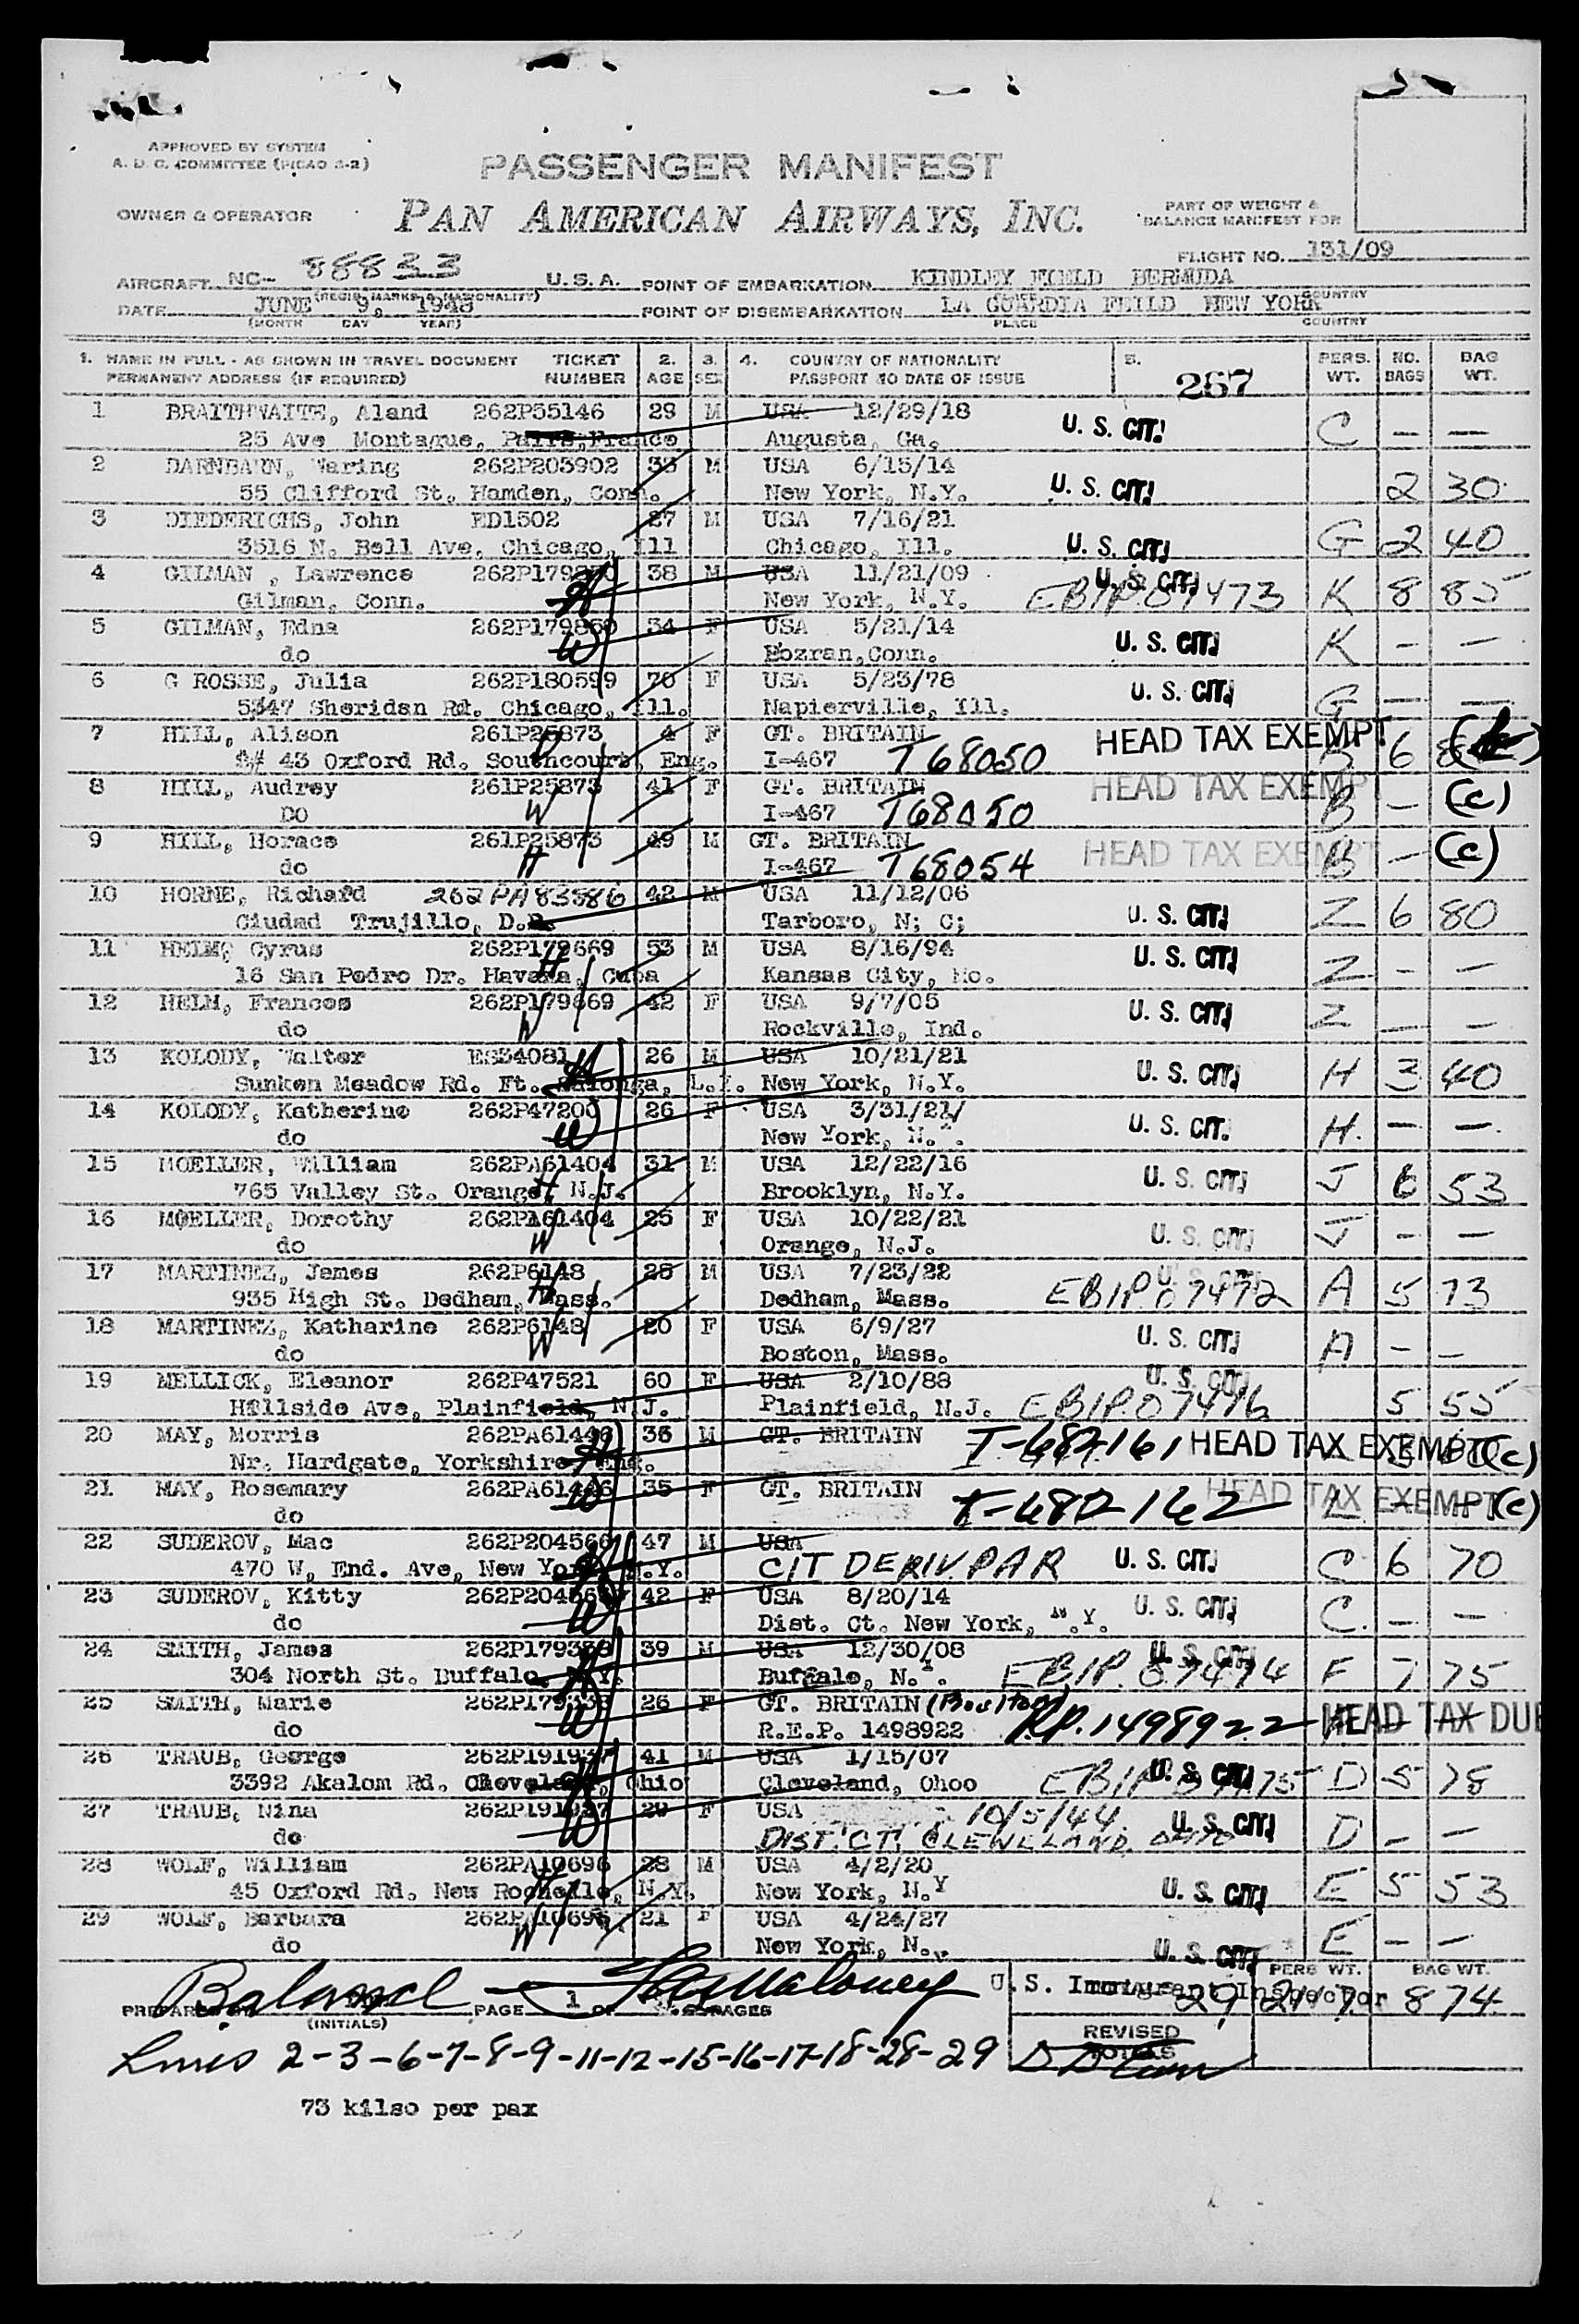 APPROVED BY SYSTEM
A. D. C. COMMITTEE (PICAO 3-2)
PASSENGER MANIFEST
OWNER & OPERATOR PAN AMERICAN AIRWAYS, INC.
PART OF WEIGHT &
BALANCE MANIFEST FOR
FLIGHT NO. 131/09
AIRCRAFT NC- 88833 U.S.A. POINT OF EMBARKATION KINDLEY FIELD BERMUDA
(REGIS. MARKS & NATIONALITY) COUNTRY
DATE JUNE 9, 1948 POINT OF DISEMBARKATION LA GUARDIA FEILD NEW YORK
(MONTH DAY YEAR) PLACE COUNTRY
1. NAME IN FULL - AS SHOWN IN TRAVEL DOCUMENT TICKET 2. 3. 4. COUNTRY OF NATIONALITY 5. PERS. NO. BAG
PERMANENT ADDRESS (IF REQUIRED) NUMBER AGE SEX PASSPORT NO DATE OF ISSUE 267 WT. BAGS WT.
1 BRAITHWAITE, Aland 262P55146 29 M USA 12/29/18 U. S. CIT.
25 Ave Montaque, Paris, France Augusta, Ga. C — —
2 DARNBAUN, Waring 262P203902 33 M USA 6/15/14
55 Clifford St, Hamden, Conn. New York, N.Y. U. S. CIT. 2 30
3 DIEDERICHS, John ED1502 27 M USA 7/16/21
3516 N. Bell Ave, Chicago, Ill Chicago, Ill. U. S. CIT. G 2 40
4 GILMAN , Lawrence 262P179850 38 M USA 11/21/09 U. S. CIT.
Gilman, Conn. H New York, N.Y. EBIP.07473 K 8 85
5 GILMAN, Edna 262P179850 34 F USA 5/21/14 U. S. CIT.
do W Bozran,Conn. K - —
6 G ROSSE, Julia 262P180599 70 F USA 5/23/78 U. S. CIT.
5347 Sheridan Rd. Chicago, Ill. Napierville, Ill. G — —
7 HILL, Alison 261P25873 4 F GT. BRITAIN HEAD TAX EXEMPT
43 Oxford Rd. Southcourt, Eng. I-467 T68050 B 6
8 HILL, Audrey 261P25873 41 F GT. BRITAIN HEAD TAX EXEMPT
DO W I-467 T68050 B — (c)
9 HILL, Horace 261P25873 49 M GT. BRITAIN HEAD TAX EXEMPT
do H I-467 T68054 B — (c)
10 HORNE, Richard 262PA83586 42 M USA 11/12/06
Ciudad Trujillo, D.R. Tarboro, N; C; U. S. CIT. Z 6 80
11 HELM, Cyrus 262P179669 53 M USA 8/16/94 U. S. CIT.
16 San Pedro Dr. Havana, Cuba H Kansas City, Mo. Z - —
12 HELM, Frances 262P179669 42 F USA 9/7/05 U. S. CIT.
do W Rockville, Ind. Z — —
13 KOLODY, Walter ES34081 26 M USA 10/21/21
Sunken Meadow Rd. Ft. Salonga, L.I. New York, N.Y. U. S. CIT. H 3 40
14 KOLODY, Katherine 262P47200 26 F USA 3/31/21/ U. S. CIT.
do W New York, N.Y. H. — —
15 MOELLER, William 262PA61404 31 M USA 12/22/16
765 Valley St. Orange, N.J. H Brooklyn, N.Y. U. S. CIT. J 6 53
16 MOELLER, Dorothy 262PA61404 25 F USA 10/22/21
do W Orange, N.J. U. S. CIT. J - —
17 MARTINEZ, James 262P6148 25 M USA 7/23/22 U. S. CIT.
935 High St. Dedham, Mass. H Dedham, Mass. EBIP.07472 A 5 73
18 MARTINEZ, Katharine 262P6148 20 F USA 6/9/27
do W Boston, Mass. U. S. CIT. A - —
19 MELLICK, Eleanor 262P47521 60 F USA 2/10/88 U. S. CIT.
Hillside Ave, Plainfield, N.J. Plainfield, N.J. EBIP.07476 5 55
20 MAY, Morris 262PA61446 36 M GT. BRITAIN T-682161 HEAD TAX EXEMPT (c)
Nr. Hardgate, Yorkshire Eng. H
21 MAY, Rosemary 262PA61446 35 F GT. BRITAIN T-682162 HEAD TAX EXEMPT (c)
do W
22 SUDEROV, Mac 262P204566 47 M USA
470 W, End. Ave, New York N.Y. CIT DERIV. PAR U. S. CIT. C 6 70
23 SUDEROV, Kitty 262P204566 42 F USA 8/20/14 U. S. CIT.
do W Dist. Ct. New York, N.Y. C. — —
24 SMITH, James 262P179338 39 M USA 12/30/08 U. S. CIT.
304 North St. Buffalo, N.Y. H Buffalo, N.Y. EBIP.07474 F 7 75
25 SMITH, Marie 262P179338 26 F GT. BRITAIN HEAD TAX DUE
do W R.E.P. 1498922 R.P. 1498922
26 TRAUB, George 262P191937 41 M USA 1/15/07 U. S. CIT.
3392 Akalom Rd. Cleveland, Ohio H Cleveland, Ohoo EBIP.07475 D 5 78
27 TRAUB, Nina 262P191937 29 F USA 10/5/44 U. S. CIT.
do W DIST. CT. CLEWELAND. OHIO D — —
28 WOLF, William 262PA10696 28 M USA 4/2/20
45 Oxford Rd. New Rochelle, N.Y. H New York, N.Y U. S. CIT. E 5 53
29 WOLF, Barbara 262PA10696 21 F USA 4/24/27
do W New York, N.Y. U. S. CIT. E — —
Balanced U. S. Immigrant Inspector
PREPARED BY PAGE 1 OF PAGES TOTALS 29 2117 874
(INITIALS) PERS WT. BAG WT.
REVISED
TOTALS
Lines 2-3-6-7-8-9-11-12-15-16-17-18-28-29
73 kilso per pax